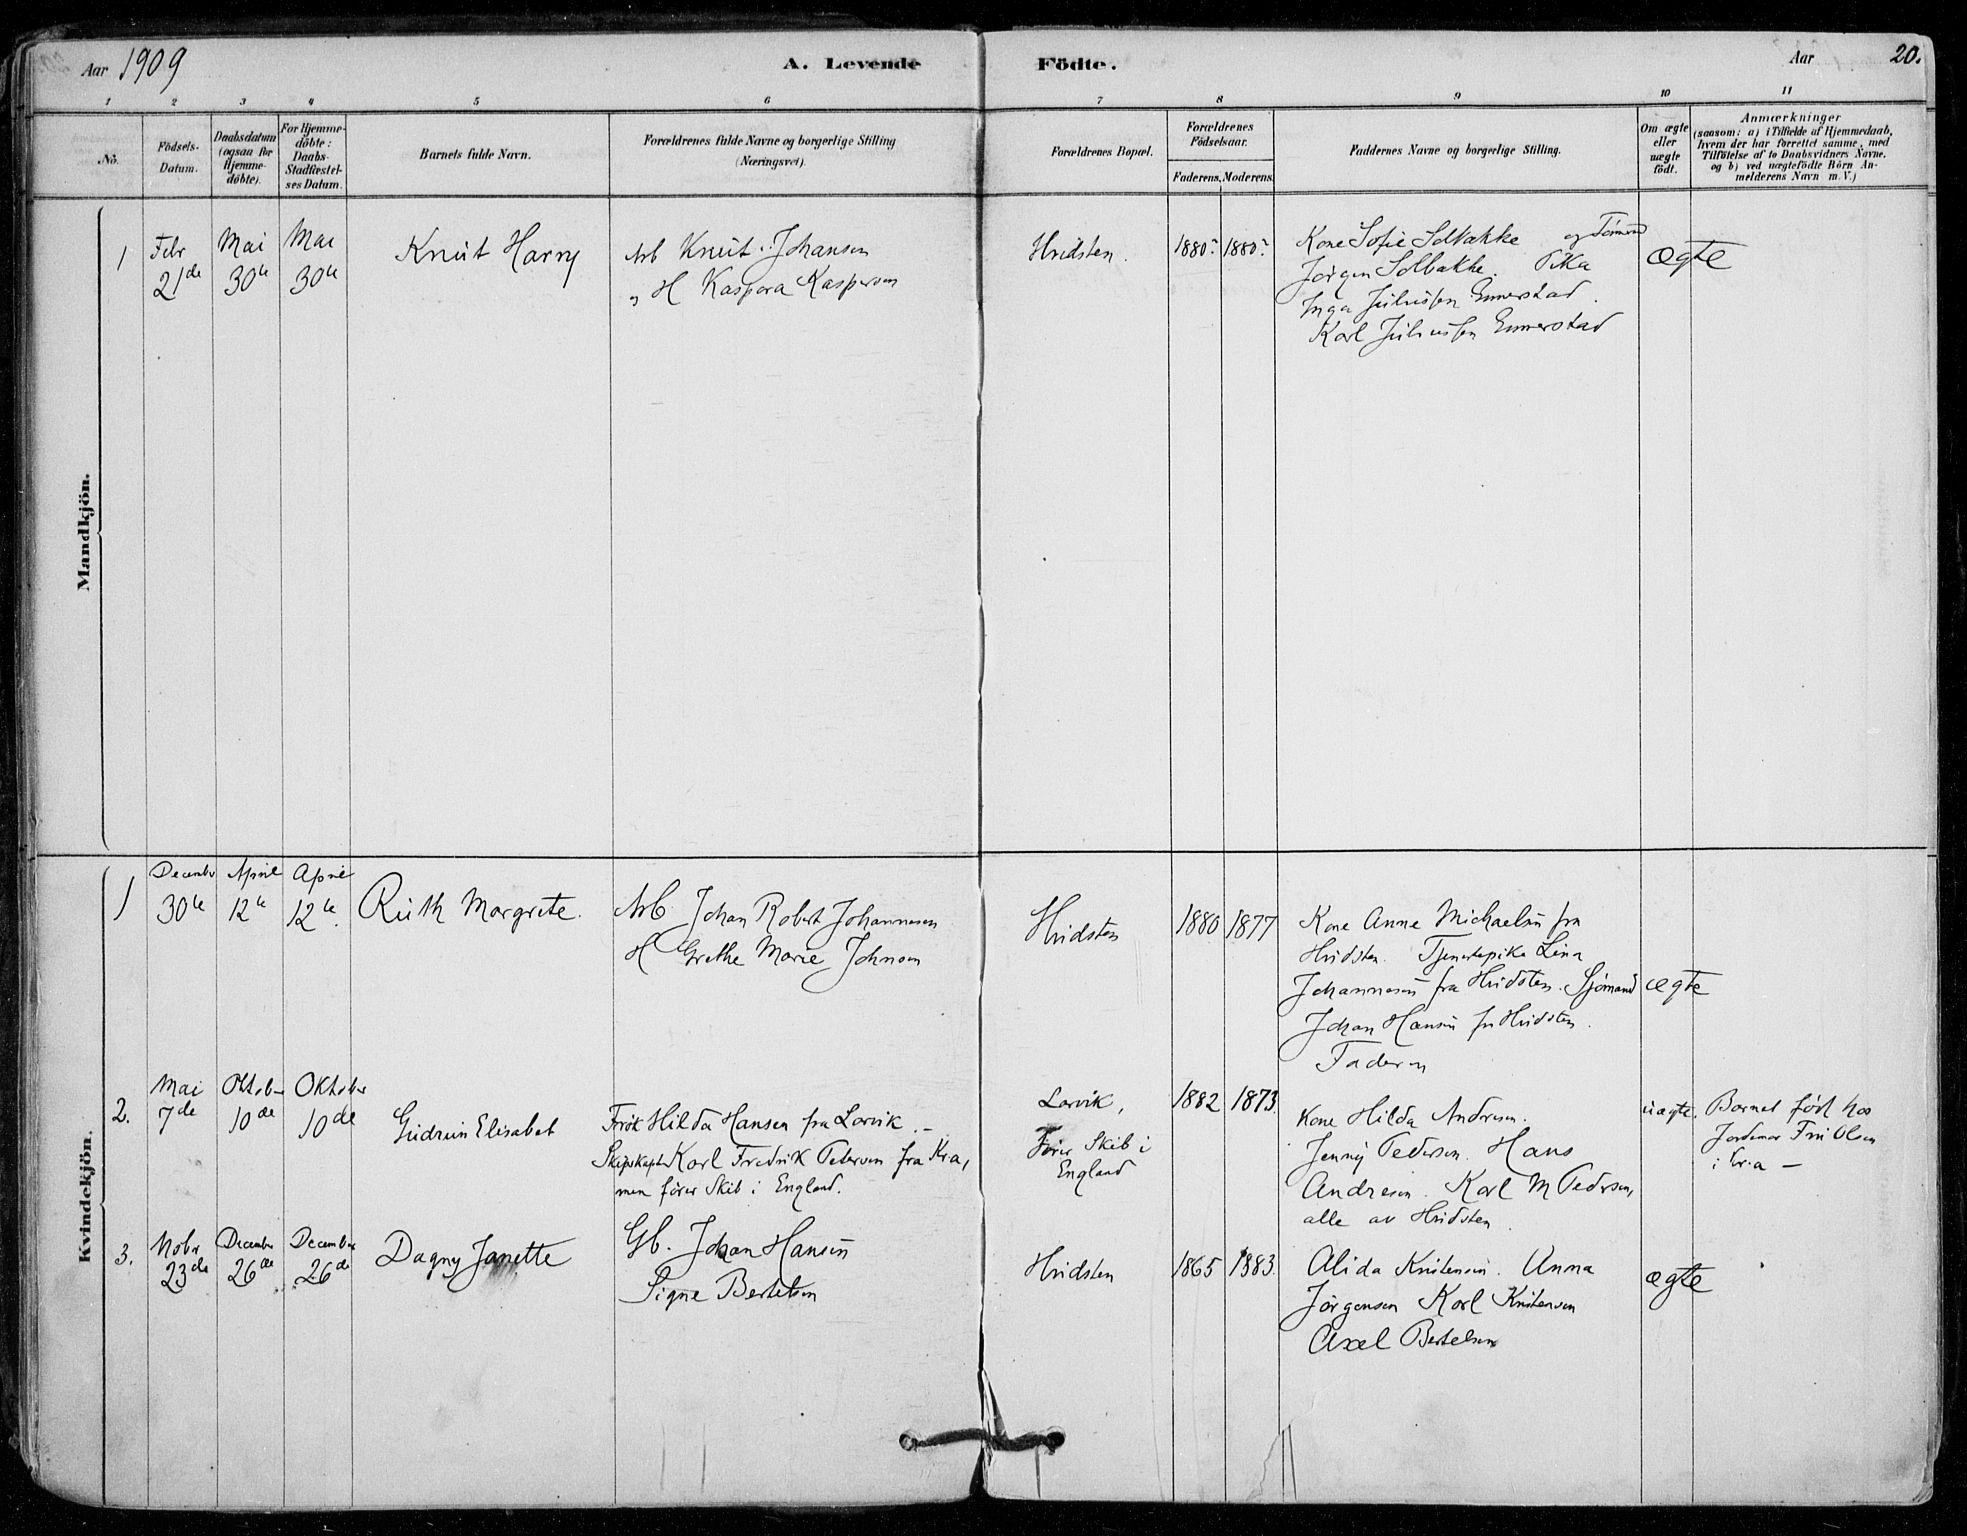 Aar 1909
A. Levende Födte.
Aar
20.
1 2 3 4 5 6 7 8 9 10 11
No.
Födsels-
Datum.
Daabsdatum
(ogsaa for
Hjemme-
döbte).
For Hjemme-
döbte:
Daabs-
Stadfæstel-
ses Datum.
Barnets fulde Navn.
Forældrenes fulde Navne og borgerlige Stilling
(Næringsvei).
Forældrenes Bopæl.
Forældrenes
Födselsaar.
Faderens. Moderens.
Faddernes Navne og borgerlige Stilling.
Om ægte
eller
uægte
födt.
Anmærkninger
(saasom: a) i Tilfælde af Hjemmedaab,
hvem der har forrettet samme, med
Tilföielse af to Daabsvidners Navne.
og b) ved uægtefödte Börn An-
melderens Navn m. V.)
Mandkjön.
1
Febr
21de
Mai
30te
Mai
30te
Knut Harry
Arb Knut Johansen
og H Kaspara Kaspersen
Hvidsten.
1880? 1880?
Kone Sofie Solbakke og Tömmd
Jørgen Solbakke. Pika
Inga Juliussen Emmerstad.
Karl Juliussen Emmerstad
ægte
Kvindekjön.
1
December
30te
April
12te
April
12te
Ruth Margrete.
Arb. Johan Robert Johannesen
H Grethe Marie Johnsen
Hvidsten
1880 1877
Kone Anne Michaelsen fra
Hvidsten. Tjenestepike Lina
Johannesen fra Hvidsten. Sjömand
Johan Hansen fra Hvidsten.
Faderen
ægte
2.
Mai
7de
Oktober
10de
Oktober
10de
Gudrun Elisabet
Frök Hilda Hansen fra Larvik. –
Skipskapt Karl Fredrik Petersen fra Kra,
men förer Skib i England.
Larvik,
Förer Skib i
England
1882 1873.
Kone Hilda Andresen.
Jenny Pedersen. Hans
Andresen. Karl M Pedersen,
alle av Hvidsten.
uægte.
Barnet född hos
Jordemor Fru Olsen
i Kr.a –
3.
Nobr
23de
December
26de
December
26de
Dagny Janette
Gb. Johan Hansen
Signe Bertelsen
Hvidsten
1865 1883.
Alida Kristensen. Anna
Jørgensen Karl Kristensen
Axel Bertelsen
ægte